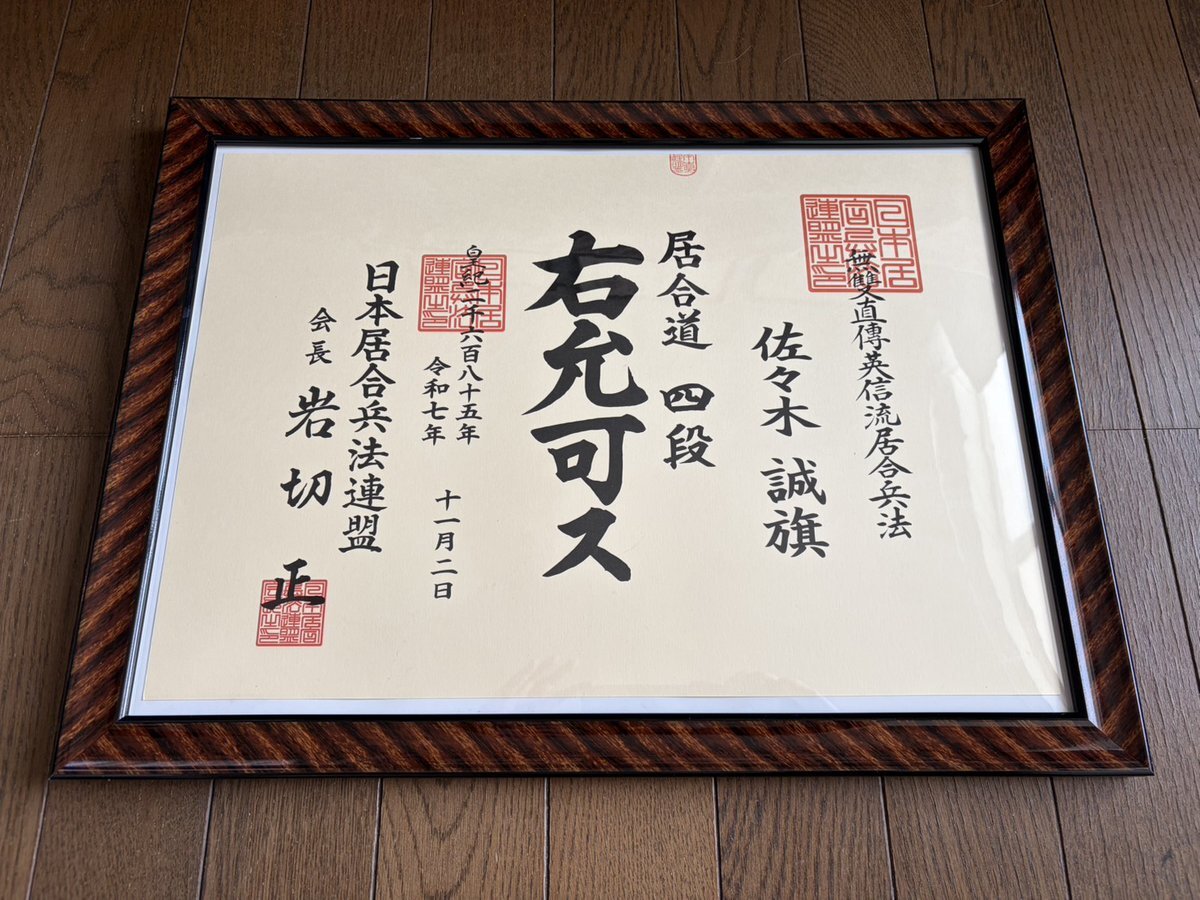 無雙直傳英信流居合兵法
佐々木 誠旗
居合道 四段
右允可ス
皇紀二千六百八十五年
令和七年 十一月二日
日本居合兵法連盟
会長 岩切 正